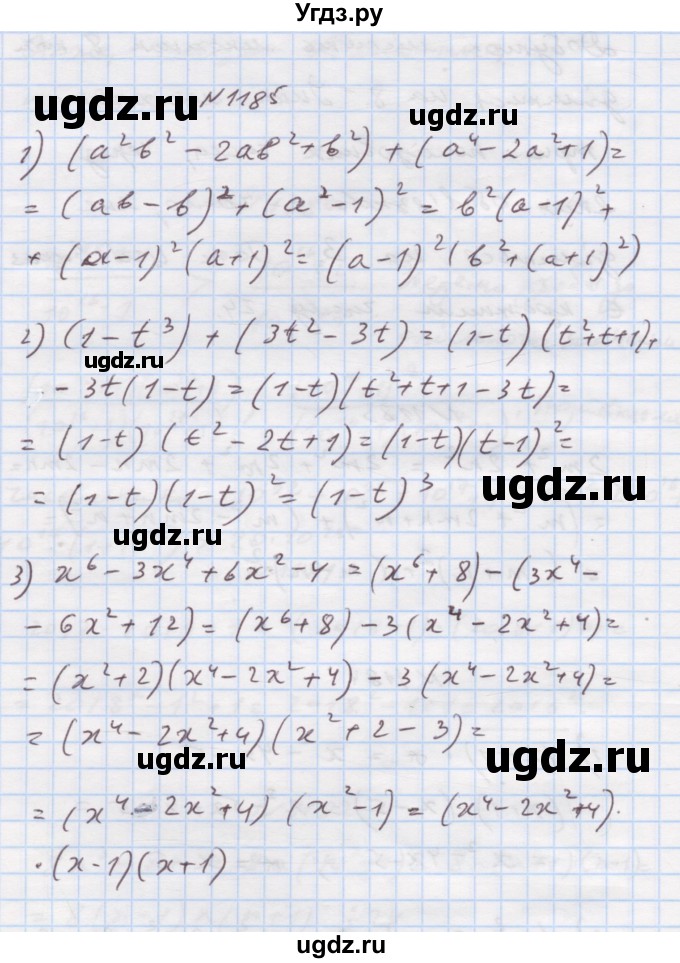 Угдз.ру
№1185
ugdz.ru
ugdz.ru
1) (a²b² - 2ab² + b²) + (a⁴ - 2a² + 1) =
= (ab - b)² + (a² - 1)² = b²(a - 1)² +
+ (a - 1)²(a + 1)² = (a - 1)²(b² + (a + 1)²)
2) (1 - t³) + (3t² - 3t) = (1 - t)(t² + t + 1) +
ugdz.ru
- 3t(1 - t) = (1 - t)(t² + t + 1 - 3t) =
= (1 - t)(t² - 2t + 1) = (1 - t)(t - 1)² =
= (1 - t)(1 - t)² = (1 - t)³
ugdz.ru
ugdz.ru
3) x⁶ - 3x⁴ + 6x² - 4 = (x⁶ + 8) - (3x⁴ -
- 6x² + 12) = (x⁶ + 8) - 3(x⁴ - 2x² + 4) =
= (x² + 2)(x⁴ - 2x² + 4) - 3(x⁴ - 2x² + 4) =
= (x⁴ - 2x² + 4)(x² + 2 - 3) =
ugdz.ru
ugdz.ru
= (x⁴ - 2x² + 4)(x² - 1) = (x⁴ - 2x² + 4)·
·(x - 1)(x + 1)
ugdz.ru